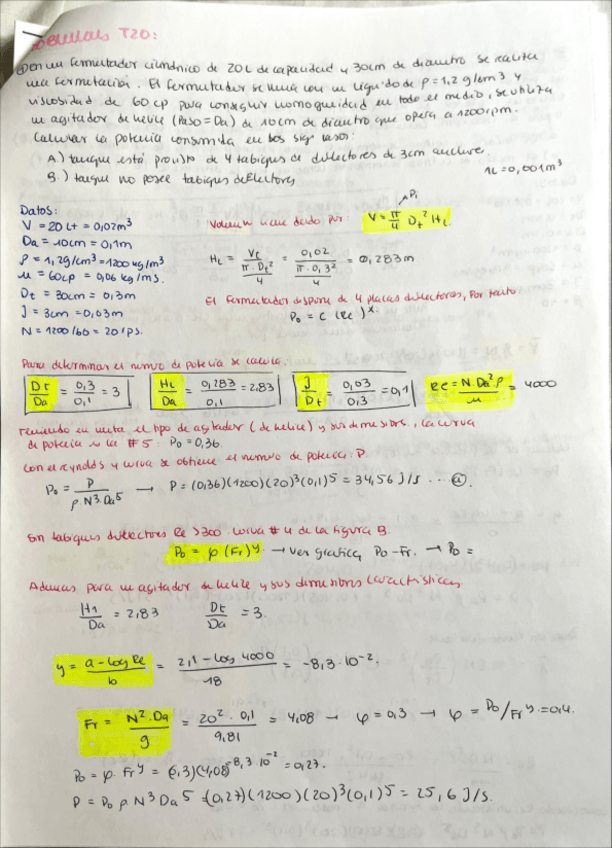 T20:
① En un fermentador cilíndrico de 20L de capacidad y 30cm de diámetro se realiza
una fermentación. El fermentador se llena con un líquido de ρ=1,2 g/cm³ y
viscosidad de 60 cp para conseguir homogeneidad en todo el medio, se utiliza
un agitador de hélice (Paso = Da) de 10cm de diámetro que opera a 1200rpm.
Calcular la potencia consumida en los sig casos:
A.) tanque está provisto de 4 tabiques de deflectores de 3cm anchura.
B.) tanque no posee tabiques deflectores
1L = 0,001m³
Datos:
V = 20 Lt = 0,02m³
Da = 10cm = 0,1m
ρ = 1,2g/cm³ = 1200 kg/m³
μ = 60cp = 0,06 kg/ms.
Dt = 30cm = 0,3m
J = 3cm = 0,03m
N = 1200/60 = 20 rps.
Pi
Volumen viene dado por: V = π/4 Dt² HL
HL = Vt / (π·Dt²/4) = 0,02 / (π·0,3²/4) = 0,283m
El fermentador dispone de 4 placas deflectoras, Por tanto
Po = C (Re)ˣ
Para determinar el número de potencia se calcula.
Dt/Da = 0,3/0,1 = 3
HL/Da = 0,283/0,1 = 2,83
J/Dt = 0,03/0,3 = 0,1
Re = N·Da²ρ/μ = 4000
teniendo en cuenta el tipo de agitador (de hélice) y sus dimensiones, la curva
de potencia es la #5: Po = 0,36.
Con el reynolds y curva se obtiene el número de potencia: P.
Po = P/ρ·N³Da⁵ → P = (0,36)(1200)(20)³(0,1)⁵ = 34,56 J/s ... ⓐ.
Sin tabiques deflectores Re >300. curva #4 de la figura B.
Po = φ (Fr)ʸ → ver grafica, Po-Fr. → Po =
Además para un agitador de hélice y sus dimensiones características
H1/Da = 2,83
Dt/Da = 3.
y = a - log Re / b = 2,1 - log 4000 / 18 = -8,3·10⁻².
Fr = N²·Da/g = 20²·0,1/9,81 = 4,08 → φ = 0,3 → φ = Po/Frʸ = 0,4.
Po = φ·Frʸ = (0,3)(4,08)^-8,3·10⁻² = 0,27.
P = Po ρ N³ Da⁵ = (0,27)(1200)(20)³(0,1)⁵ = 25,6 J/s.